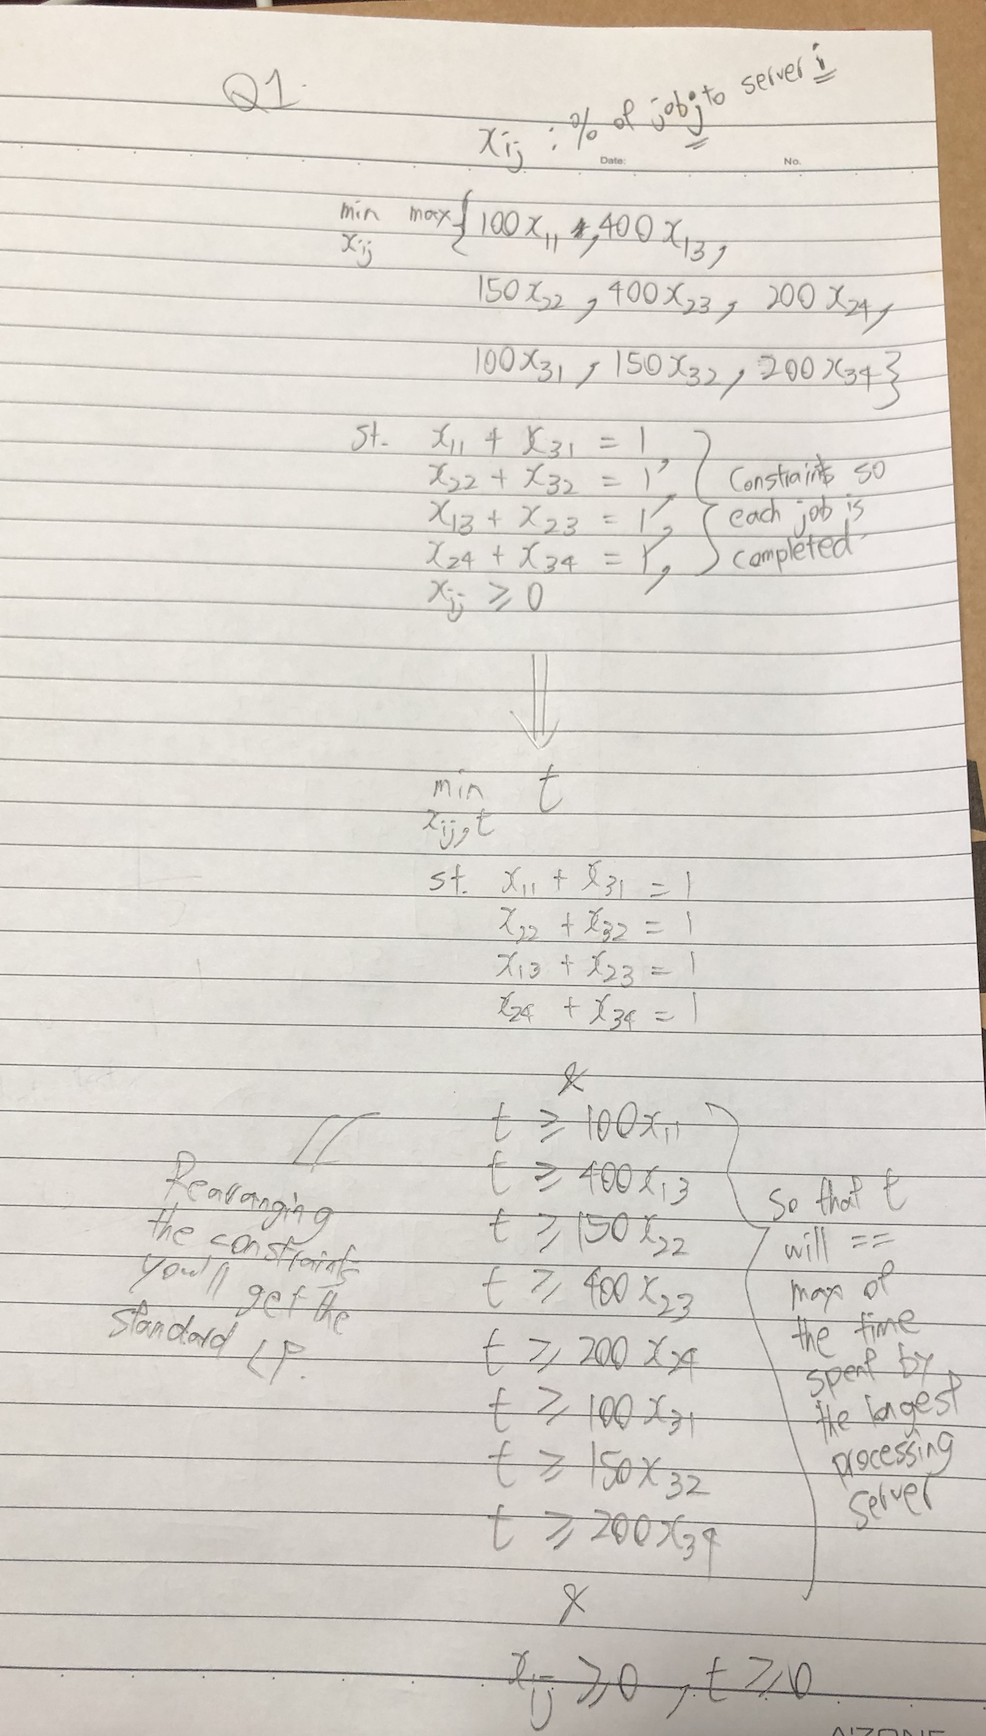 Q1.
xij : % of job j to server i
Date: No.
min max { 100x11 , 400x13,
xij
150x22 , 400x23 , 200x24,
100x31 , 150x32 , 200x34 }
st. x11 + x31 = 1,
x22 + x32 = 1,
x13 + x23 = 1,
x24 + x34 = 1,
xij ≥ 0
Constraints so
each job is
completed
⇓
min t
xij,t
st. x11 + x31 = 1
x22 + x32 = 1
x13 + x23 = 1
x24 + x34 = 1
&
t ≥ 100x11
t ≥ 400x13
t ≥ 150x22
t ≥ 400x23
t ≥ 200x24
t ≥ 100x31
t ≥ 150x32
t ≥ 200x34
So that t
will ==
max of
the time
spent by
the longest
processing
server
Rearranging
the constraints
you'll get the
standard LP.
&
xij ≥ 0 , t ≥ 0